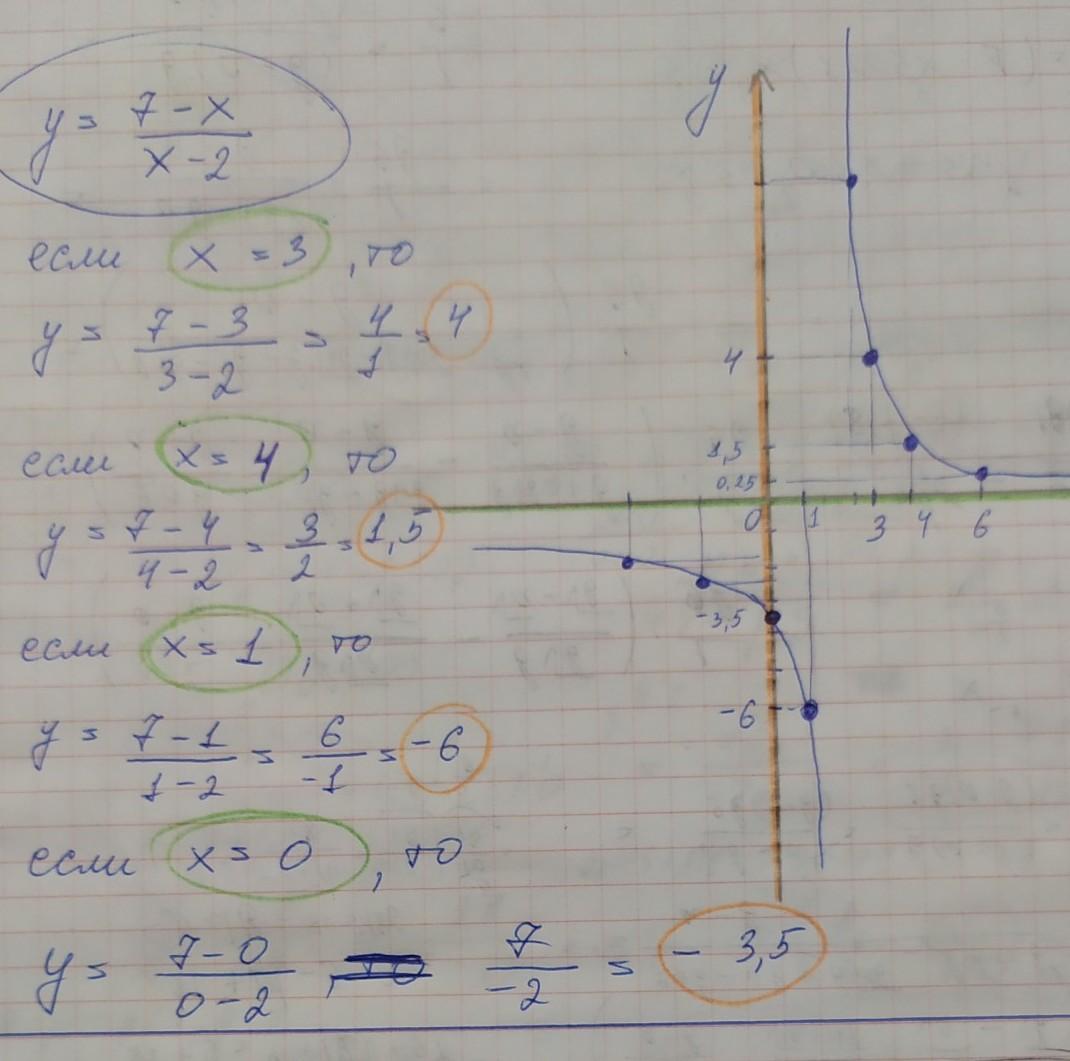 y = (7 - x)/(x - 2)
если x = 3, то
y = (7 - 3)/(3 - 2) = 4/1 = 4
если x = 4, то
y = (7 - 4)/(4 - 2) = 3/2 = 1,5
если x = 1, то
y = (7 - 1)/(1 - 2) = 6/-1 = -6
если x = 0, то
y = (7 - 0)/(0 - 2) 7/-2 = - 3,5
y
4
1,5
0,25
0 1 3 4 6
-3,5
-6